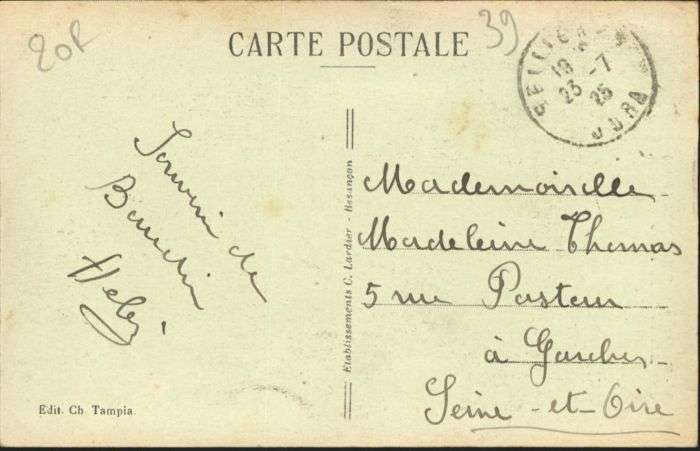 20F
CARTE POSTALE
39
SELLIÈRES
18
23 - 7
25
JURA
Souvenir de
Baudin
Mademoiselle
Madeleine Thomas
5 rue Pasteur
à Garches
Seine-et-Oise
Etablissements C. Lardier - Besançon
Edit. Ch Tampia